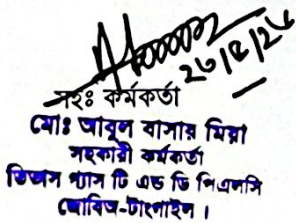 ২৮/৫/২৫
সহঃ কর্মকর্তা
মোঃ আবুল বাসার মিয়া
সহকারী কর্মকর্তা
তিতাস গ্যাস টি এন্ড ডি পিএলসি
জোবিঅ-টাংগাইল।